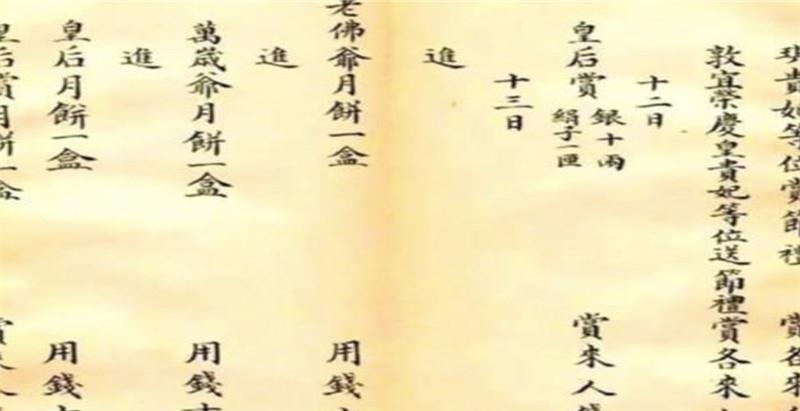 貴妃等位賞節禮 賞各來
敦宜榮慶皇貴妃等位送節禮賞各來
十二日
皇后賞 銀十兩 絹子一匣 賞來人
十三日
進
老佛爺月餅一盒 用錢
進
萬歲爺月餅一盒 用錢
進
皇后月餅一盒 用錢
皇后賞月餅一盒 賞來人